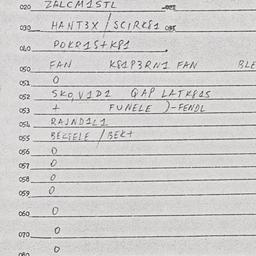 020 ZALCM1STL
030 HANT3X / SCIRK81
040 POKR15+K81
050 FAN K81P3RN1 FAN BLE
051 0
052 SKO,V1D1 QAP LATK815
053 + FUNELE )-FENDL
054 RAJND1L1
055 BEZEELE / BEK+
056 0
057 0
058 0
059 0
060 0
070 0
080 0